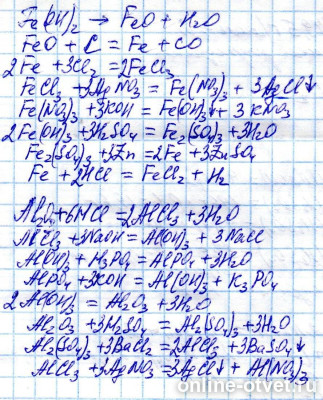 Fe(OH)₂ → FeO + H₂O
FeO + C = Fe + CO
2Fe + 3Cl₂ = 2FeCl₃
FeCl₃ + 3AgNO₃ = Fe(NO₃)₃ + 3AgCl↓
Fe(NO₃)₃ + 3KOH = Fe(OH)₃↓ + 3KNO₃
2Fe(OH)₃ + 3H₂SO₄ = Fe₂(SO₄)₃ + 3H₂O
Fe₂(SO₄)₃ + 3Zn = 2Fe + 3ZnSO₄
Fe + 2HCl = FeCl₂ + H₂
Al₂O₃ + 6HCl = 2AlCl₃ + 3H₂O
AlCl₃ + 3NaOH = Al(OH)₃ + 3NaCl
Al(OH)₃ + H₃PO₄ = AlPO₄ + 3H₂O
AlPO₄ + 3KOH = Al(OH)₃ + K₃PO₄
2Al(OH)₃ = Al₂O₃ + 3H₂O
Al₂O₃ + 3H₂SO₄ = Al₂(SO₄)₃ + 3H₂O
Al₂(SO₄)₃ + 3BaCl₂ = 2AlCl₃ + 3BaSO₄↓
AlCl₃ + 3AgNO₃ = 3AgCl↓ + Al(NO₃)₃
online-otvet.ru